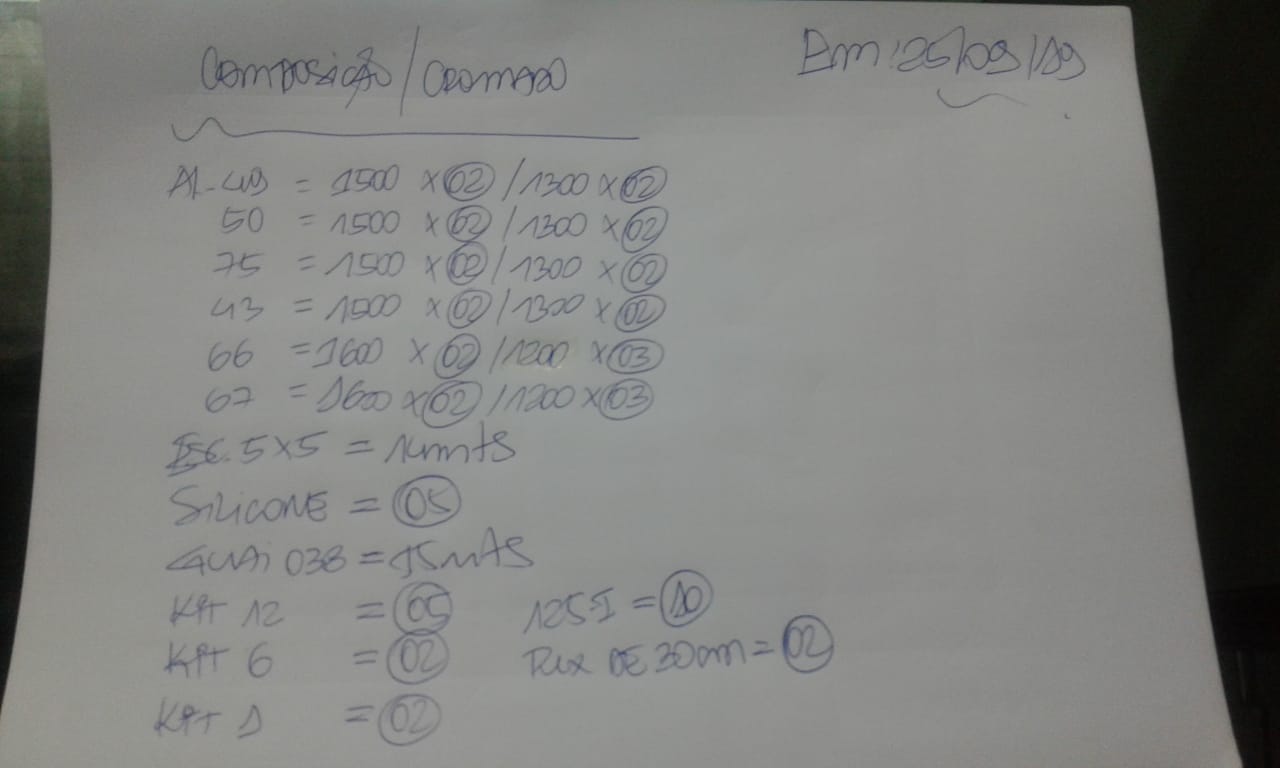 Composição / Cromado
Em: 25/09/19
AL-49 = 1500 x 02 / 1300 x 02
50 = 1500 x 02 / 1300 x 02
75 = 1500 x 02 / 1300 x 02
43 = 1500 x 02 / 1300 x 02
66 = 1600 x 02 / 1200 x 03
67 = 1600 x 02 / 1200 x 03
5x5 = 14mts
SILICONE = 05
GUAI 038 = 15mts
Kit 12 = 05 125-I = 10
Kit 6 = 02 DE 30cm = 02
Kit 1 = 02